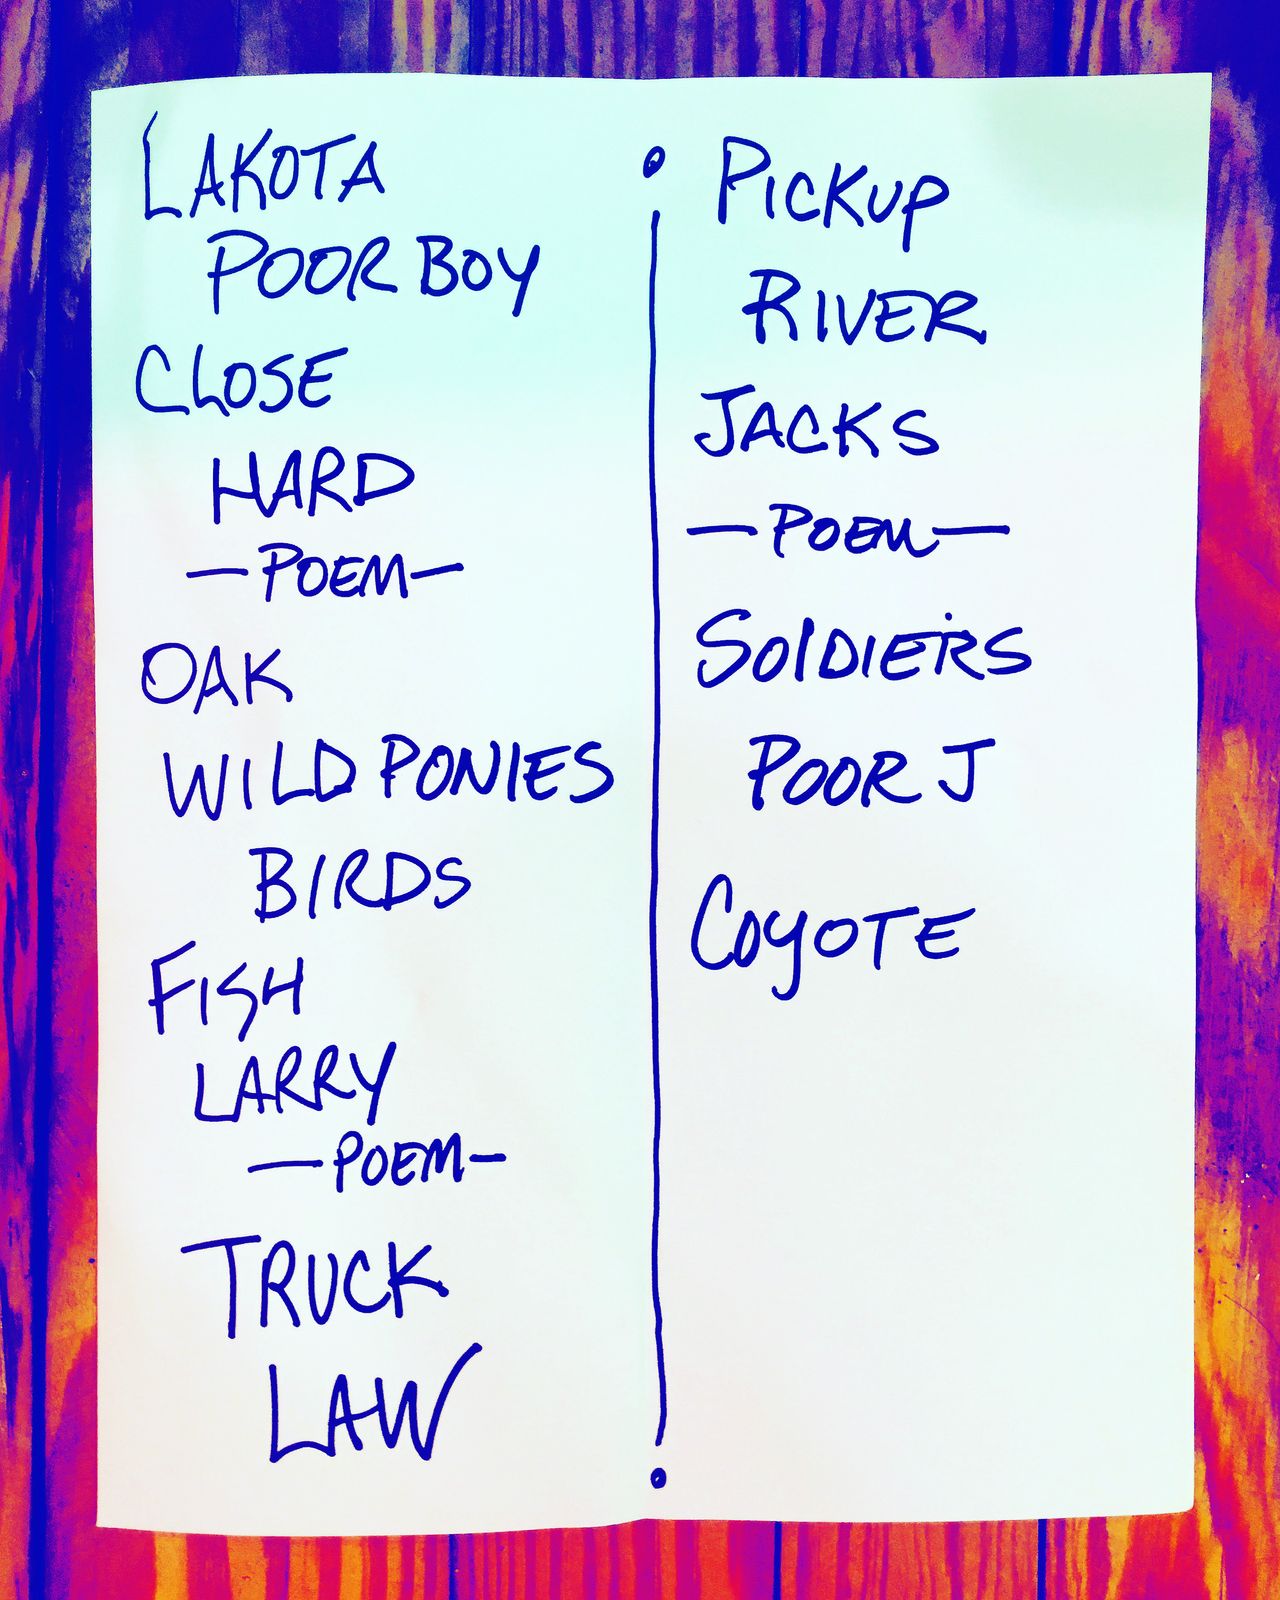 LAKOTA
POOR BOY
CLOSE
HARD
—POEM—
OAK
WILD PONIES
BIRDS
FISH
LARRY
—POEM—
TRUCK
LAW
PICKUP
RIVER
JACKS
—POEM—
SOLDIERS
POOR J
COYOTE